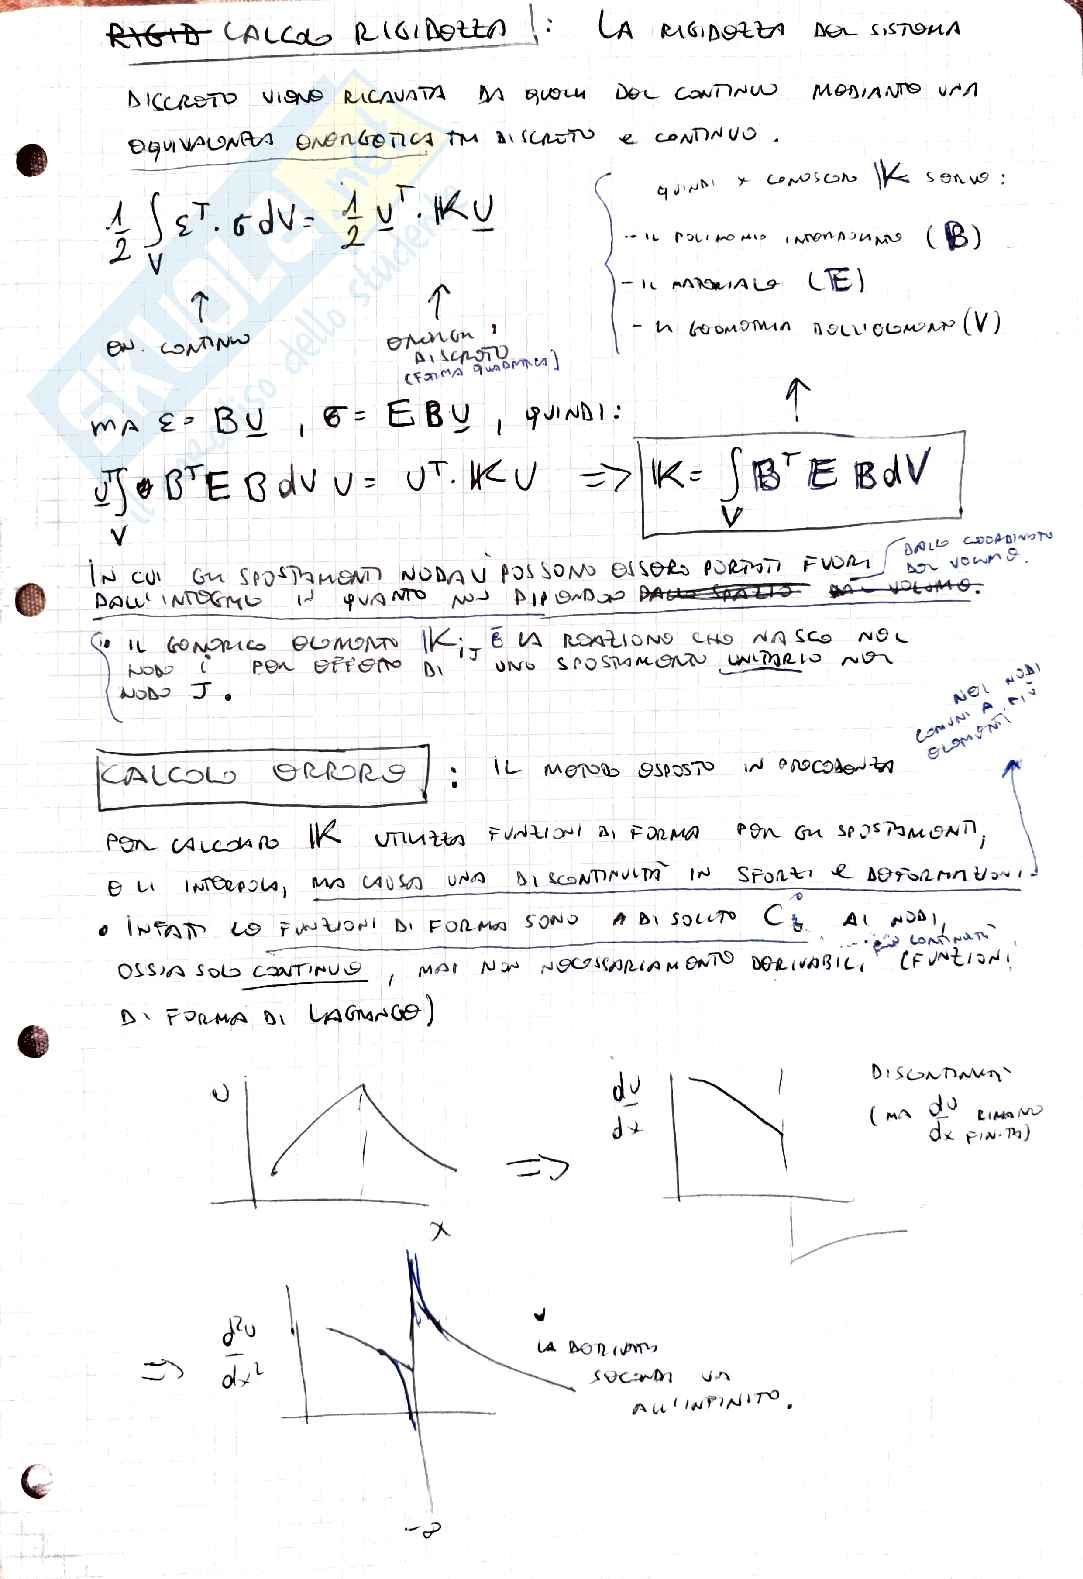 RIGID CALCOLO RIGIDEZZA!: LA RIGIDEZZA DEL SISTEMA
DISCRETO VIENE RICAVATA DA QUELLA DEL CONTINUO MEDIANTE UNA
EQUIVALENZA ENERGETICA TRA DISCRETO e CONTINUO.
1/2 ∫_V ε^T · σ dV = 1/2 U^T · K U
↑ EN. CONTINUO
↑ ENERGIA DISCRETO
(FORMA QUADRATICA)
QUINDI X CONOSCERE K SERVE:
- IL POLINOMIO INTERPOLANTE (B)
- IL MATERIALE (E)
- LA GEOMETRIA DELL'ELEMENTO (V)
MA ε = BU, σ = EBU, QUINDI:
U^T ∫_V B^T E B dV U = U^T · K U => K = ∫_V B^T E B dV
IN CUI GLI SPOSTAMENTI NODALI POSSONO ESSERE PORTATI FUORI
DALL'INTEGRALE IN QUANTO NON DIPENDONO DALLO SPAZIO DAL VOLUME.
DALLE COORDINATE
DEL VOLUME.
IL GENERICO ELEMENTO K_ij È LA REAZIONE CHE NASCE NEL
NODO i PER EFFETTO DI UNO SPOSTAMENTO UNITARIO NEL
NODO J.
NEI NODI
COMUNI A PIÙ
ELEMENTI
CALCOLO ERRORE: IL METODO ESPOSTO IN PRECEDENZA
PER CALCOLARE K UTILIZZA FUNZIONI DI FORMA PER GLI SPOSTAMENTI,
E LI INTERPOLA, MA CAUSA UNA DISCONTINUITÀ IN SFORZI e DEFORMAZIONI.
• INFATTI LE FUNZIONI DI FORMA SONO DI SOLITO C^0 AI NODI,
CONTINUITÀ
OSSIA SOLO CONTINUE, MAI NON NECESSARIAMENTE DERIVABILI, (FUNZIONI
DI FORMA DI LAGRANGE)
U
x
=>
du/dx
DISCONTINUA
(MA du/dx RIMANE
FINITA)
=> d²u/dx²
LA DERIVATA
SECONDA VA
ALL'INFINITO.
-∞
SKUOLA.net
il paradiso dello studente